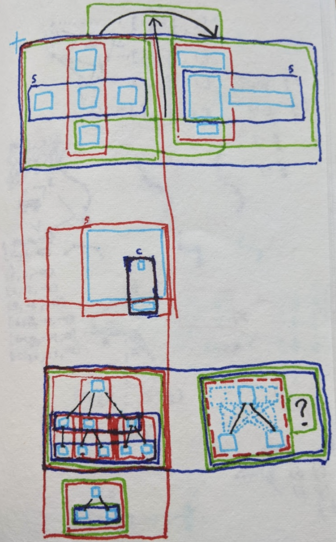 +
S
S
S
C
?